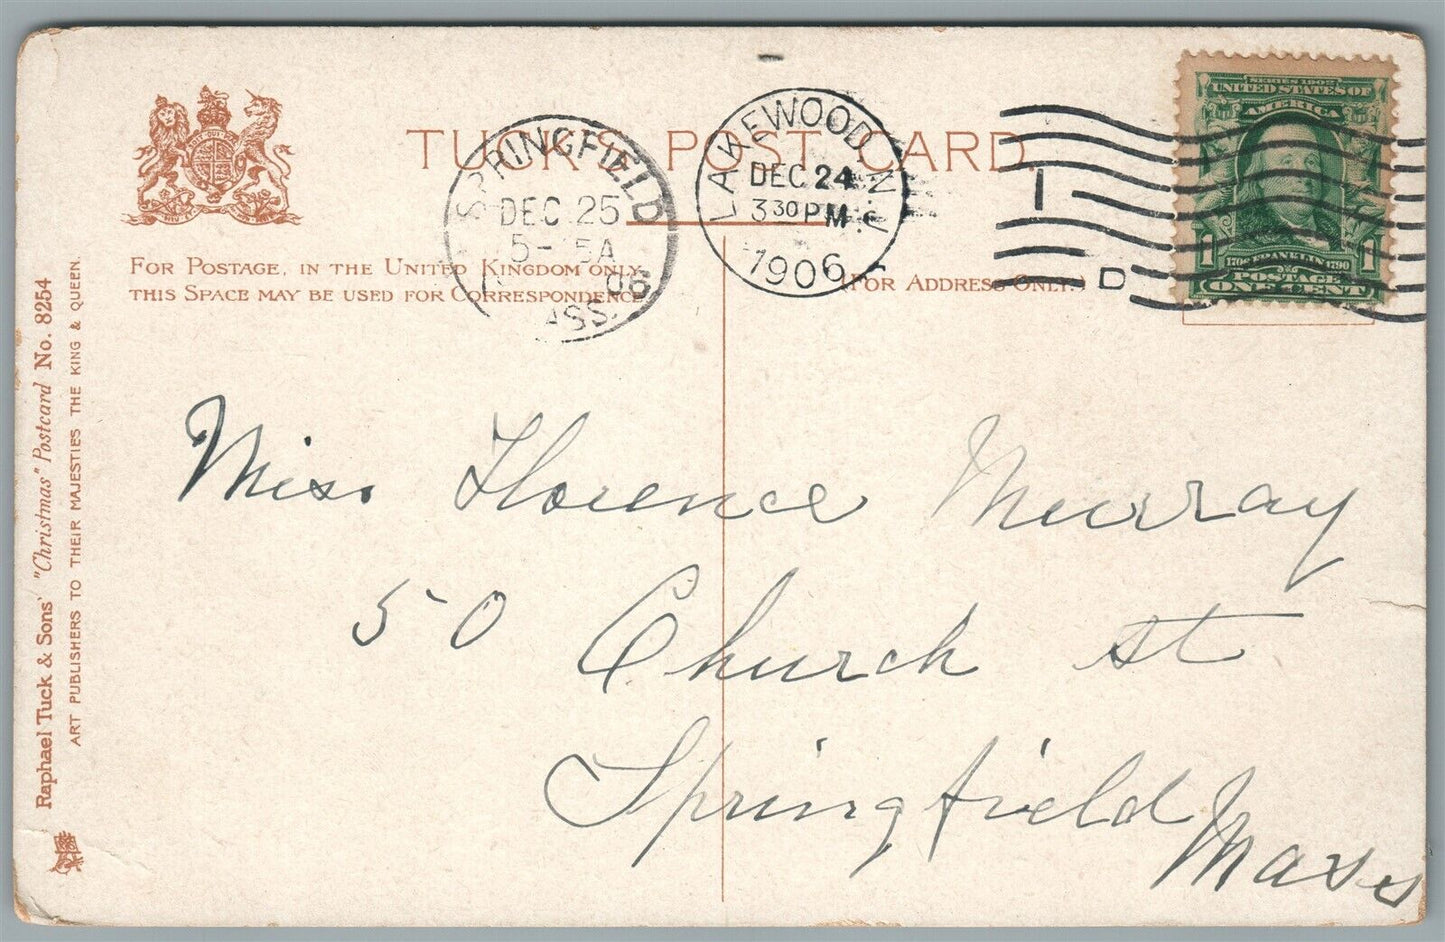 TUCK'S POST CARD.
FOR POSTAGE, IN THE UNITED KINGDOM ONLY,
THIS SPACE MAY BE USED FOR CORRESPONDENCE
(FOR ADDRESS ONLY.)
SPRINGFIELD
DEC 25
06
ASS.
LAKEWOOD N.J.
DEC 24
3 30 PM
1906
I
D
SERIES 1902
UNITED STATES OF
AMERICA
1706 FRANKLIN 1790
1 POSTAGE 1
ONE CENT
Miss Florence Murray
50 Church st
Springfield
Mass
Raphael Tuck & Sons' "Christmas" Postcard No. 8254
ART PUBLISHERS TO THEIR MAJESTIES THE KING & QUEEN.